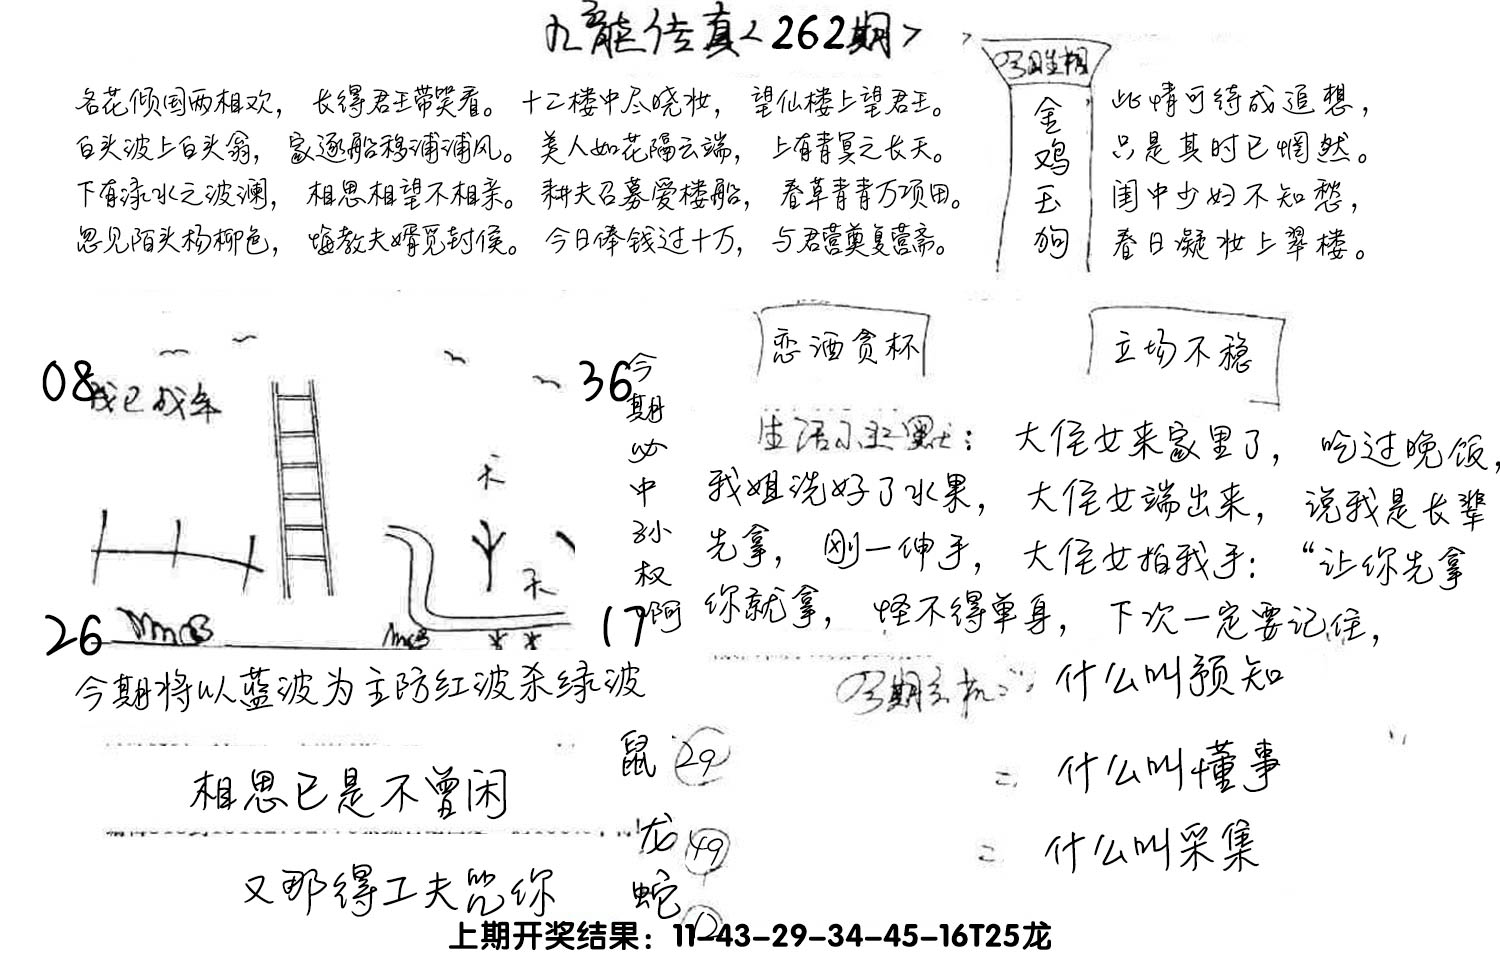 九龍传真<262期>
名花倾国两相欢，长得君王带笑看。十二楼中尽晓妆，望仙楼上望君王。
白头波上白头翁，家逐船移浦浦风。美人如花隔云端，上有青冥之长天。
下有渌水之波澜，相思相望不相亲。耕夫召募爱楼船，春草青青万项田。
忽见陌头杨柳色，悔教夫婿觅封侯。今日俸钱过十万，与君营奠复营斋。
金鸡玉狗
此情可待成追想，
只是其时已惘然。
闺中少妇不知愁，
春日凝妆上翠楼。
恋酒贪杯
立场不稳
08
36
26
17
今期必中孙权啊
生活小幽默：大侄女来家里了，吃过晚饭，
我姐洗好了水果，大侄女端出来，说我是长辈
先拿，刚一伸手，大侄女拍我手：“让你先拿
你就拿，怪不得单身，下次一定要记住，
今期将以蓝波为主防红波杀绿波
今期玄机：什么叫预知
= 什么叫懂事
= 什么叫采集
相思已是不曾闲
又那得工夫咒你
鼠 29
龙 49
蛇 12
上期开奖结果：11-43-29-34-45-16T25龙